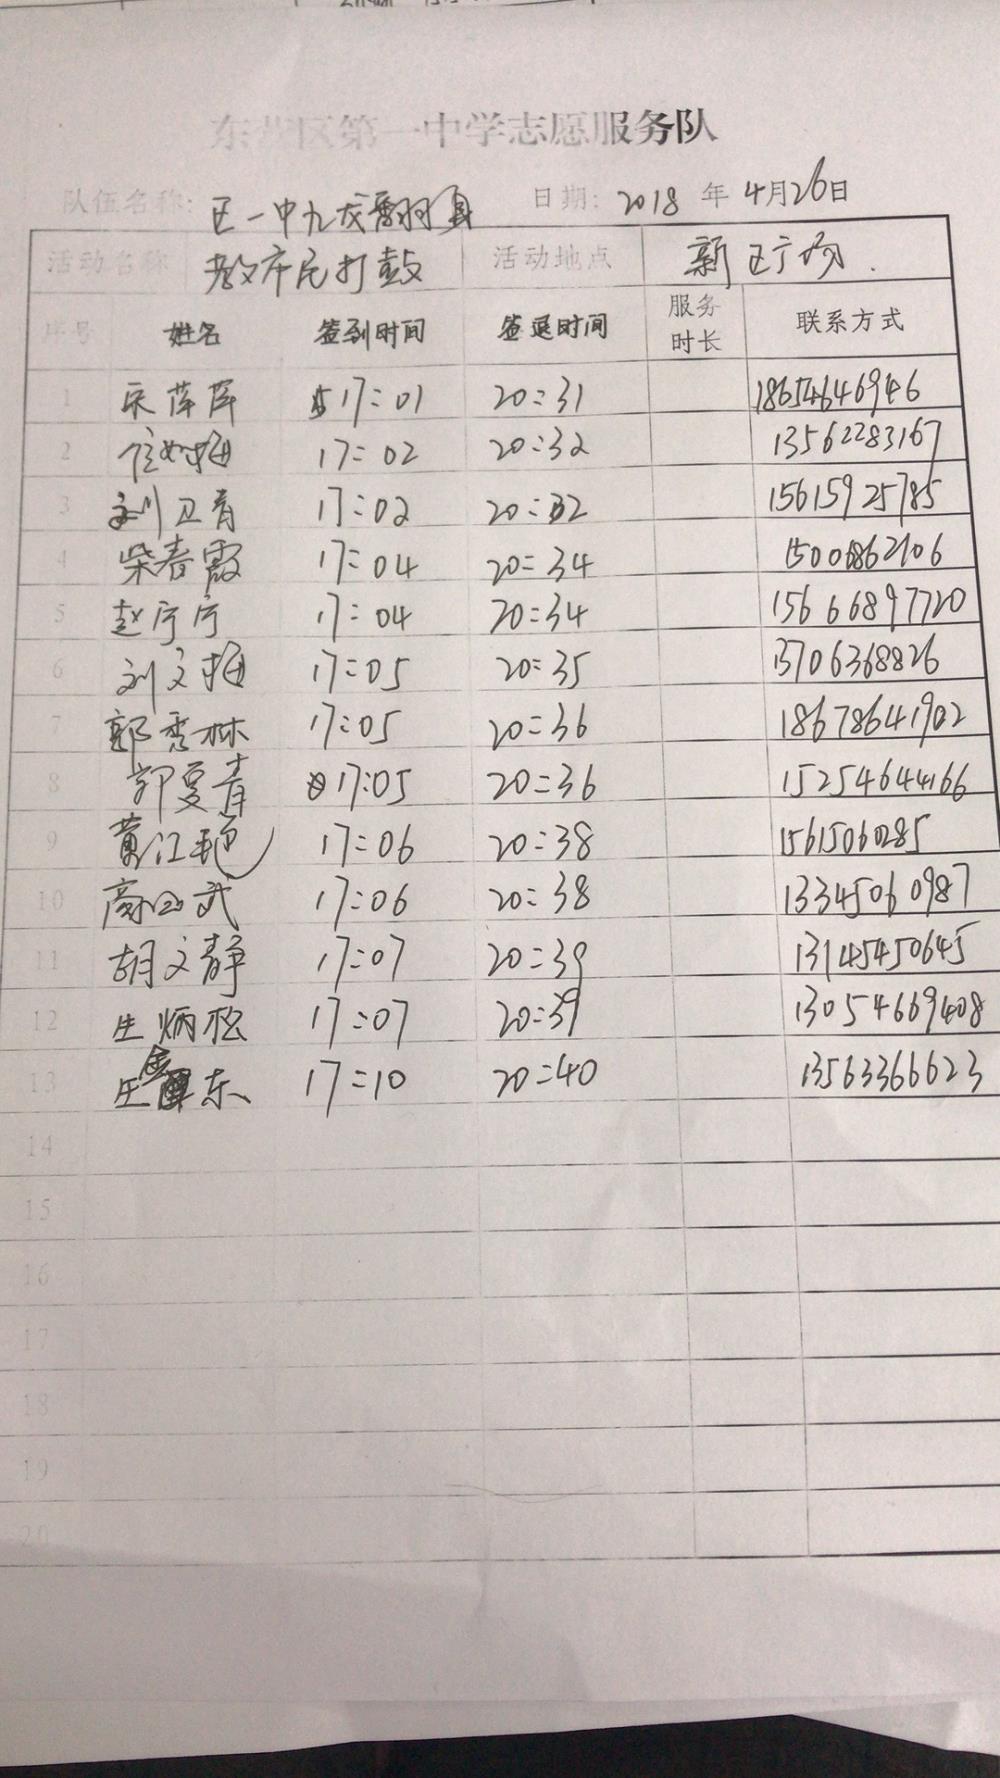 东营区第一中学志愿服务队
队伍名称: 区一中九龙翻身 日期: 2018 年 4月26日
活动名称 教市民打鼓 活动地点 新区广场.
序号 姓名 签到时间 签退时间 服务时长 联系方式
1 宋萍萍 17:01 20:31 18654646946
2 17:02 20:32 13562283167
3 刘卫青 17:02 20:32 15615925785
4 柴春霞 17:04 20:34
5 赵宁宁 17:04 20:34 15666897720
6 刘文梅 17:05 20:35 13706368826
7 郭秀林 17:05 20:36 18678641902
8 郭夏青 17:05 20:36 15254644166
9 黄江艳 17:06 20:38 15615060285
10 17:06 20:38 13345060987
11 胡文静 17:07 20:39 13145450645
12 生炳松 17:07 20:39 13054669408
13 17:10 20:40 13563366623
14
15
16
17
18
19
20